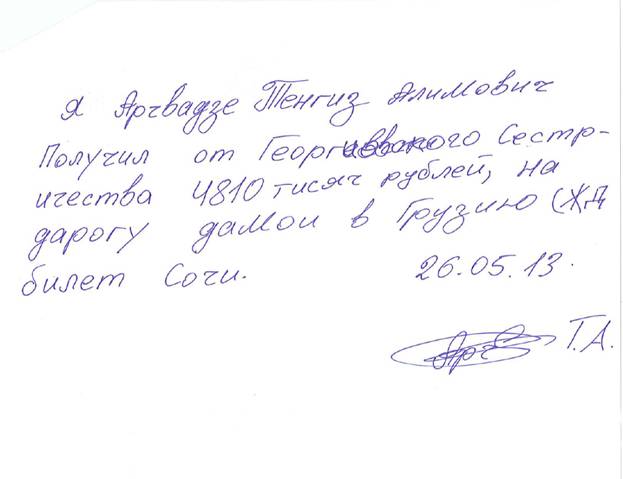 Я Арчвадзе Тенгиз Алимович
Получил от Георгиевского Сестр-
ичества 4810 тисяч рублей, на
дарогу дамои в Грузию (ЖД
билет Сочи. 26.05.13.
Арч Т.А.